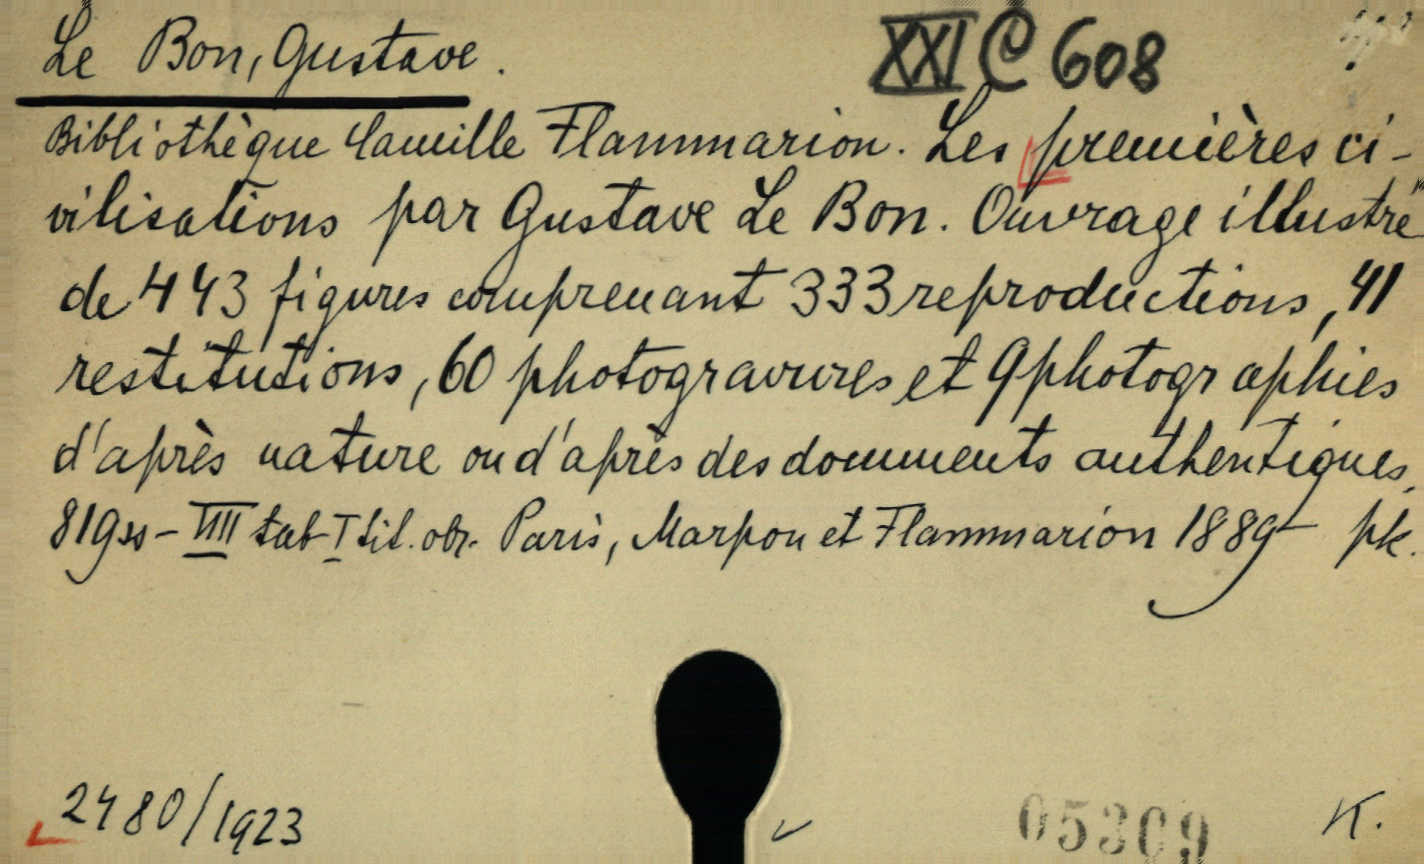 Le Bon, Gustave.
XXI C 608
Bibliothèque Camille Flammarion. Les premières ci-
vilisations par Gustave Le Bon. Ouvrage illustré
de 443 figures comprenant 333 reproductions, 41
restitutions, 60 photogravures et 9 photographies
d'après nature ou d'après des documents authentiques.
819 ss - VIIII tab - I tit. obr. Paris, Marpon et Flammarion 1889 pk.
2480/1923
05309
K.